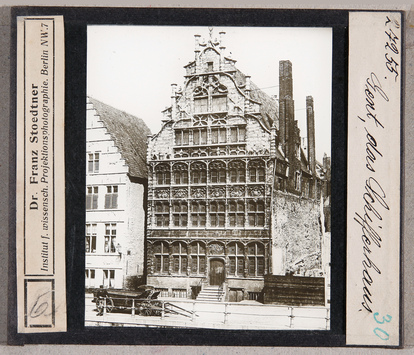 Dr. Franz Stoedtner
Institut f. wissensch. Projektionsphotographie, Berlin NW.7
27255.
Gent, das Schifferhaus.
30